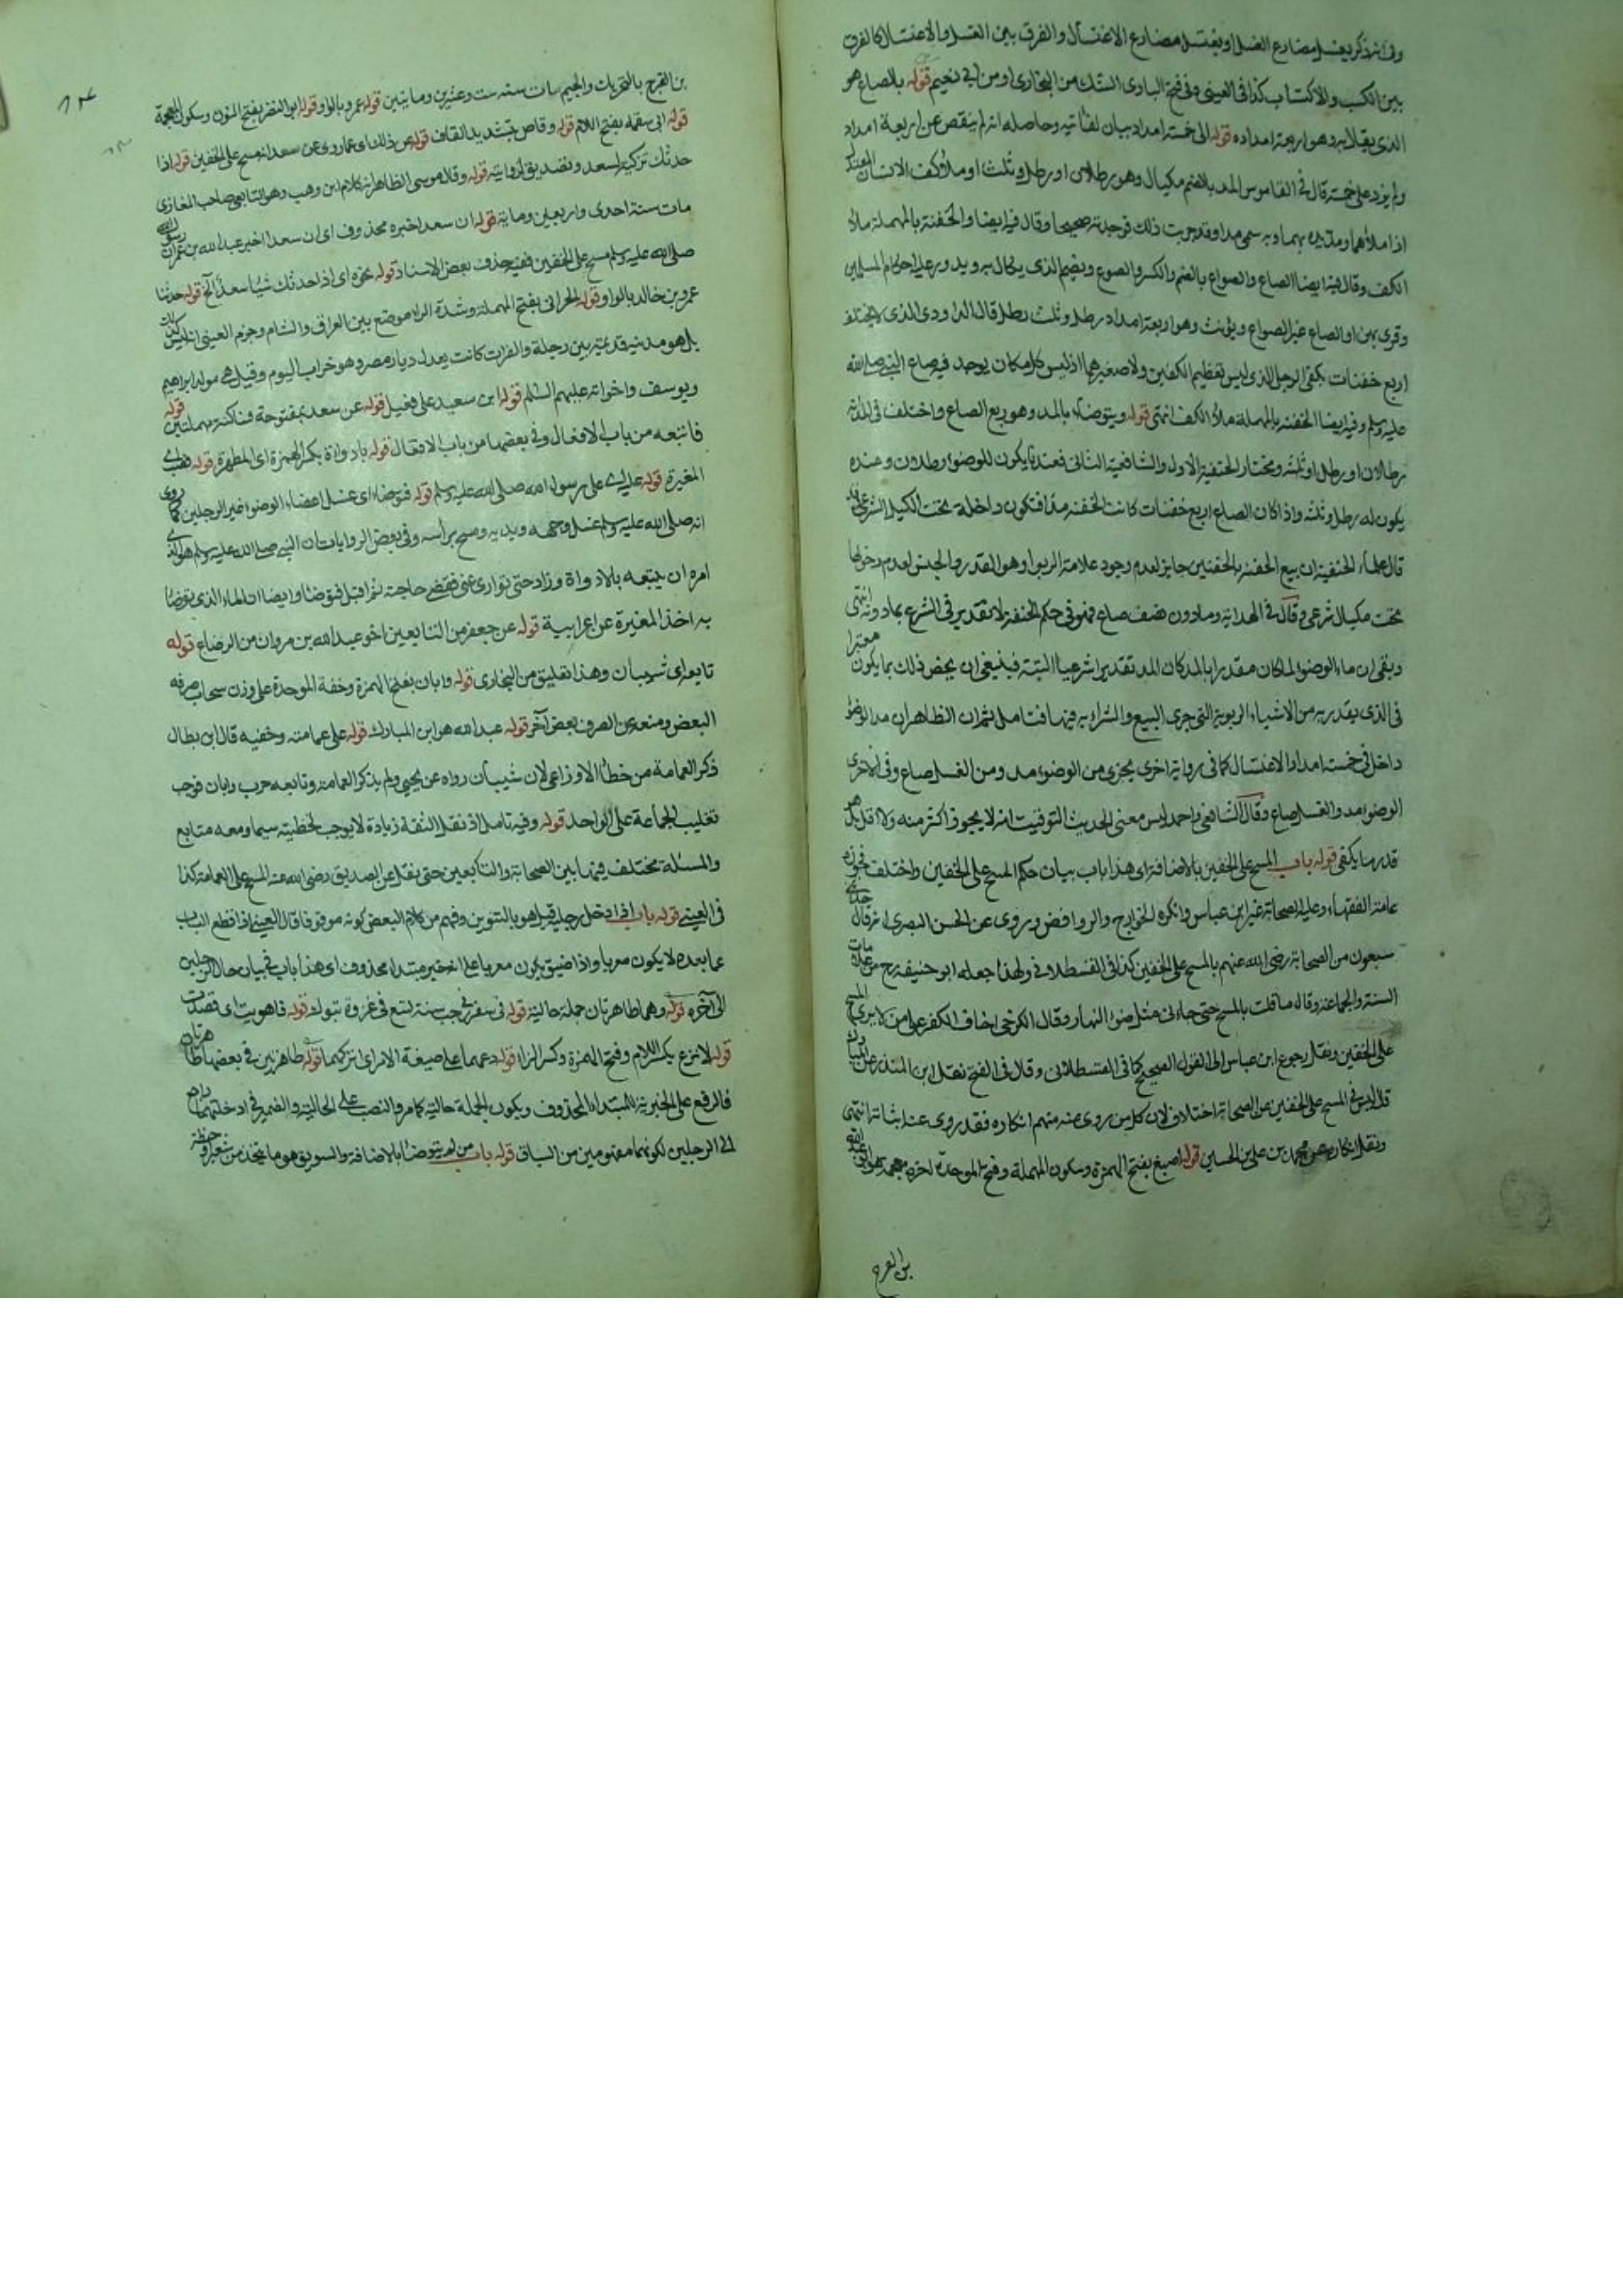 وفي ان ذكر يغسل مضارع الغسل او يغتسل مضارع الاغتسال والفرق بين الغسل والاغتسال كالفرق
بين الكسب والاكتساب كذا في العيني وفي فتح الباري الشك من البخاري او من ابي نعيم قوله بالصاع هو
الذي يقال له وهو اربعة امداده قوله الى خمسة امداد بيان لغايته وحاصله انه لم ينقص عن اربعة امداد
ولم يزد على خمسة قال في القاموس المد بالضم مكيال وهو رطلان او رطل وثلث او ملأ كف الانسان المعتدل
اذا ملأهما ومد يده بهما وبه سمي مدا وقد جربت ذلك فوجدته صحيحا وقال فيه ايضا والحفنة بالمهملة ملأ
الكف وقال فيه ايضا الصاع والصواع بالضم والكسر والصوع ويضم الذي يكال به ويدور عليه احكام المسلمين
وقرئ بهن او الصاع غير الصواع ويؤنث وهو اربعة امداد رطل وثلث رطل قال الداودي الذي لا يختلف
اربع حفنات بكفي الرجل الذي ليس بعظيم الكفين ولا صغيرهما اذ ليس كل مكان يوجد فيه صاع النبي صلى الله
عليه وسلم وفيه ايضا الحفنة بالمهملة ملأ الكف انتهى قوله ويتوضأ بالمد وهو ربع الصاع واختلف في المد انه
رطلان او رطل وثلثه ومختار الحنفية الاول والشافعية الثاني فعندنا يكون للوضوء رطلان وعنده
يكون له رطل وثلث واذا كان الصاع اربع حفنات كانت الحفنة مدا فتكون داخلة تحت الكيل الشرعي وقد
قال علماء الحنفية ان بيع الحفنة بالحفنتين جايز لعدم وجود علامة الربوا وهو القدر والجنس لعدم دخولها
تحت مكيال شرعي وقال في الهداية وما دون نصف صاع فهو في حكم الحفنة لانه لا تقدير في الشرع بما دونه انتهى
وبقي ان ماء الوضوء لما كان مقدرا بالمد كان المد تقديرا شرعيا البتة فينبغي ان يخص ذلك بما يكون معتبرا
في الذي يقدر به من الاشياء الربوية التي جرى البيع والشراء به فيها فتامل ثم ان الظاهر ان مد الوضوء
داخل في خمسة امداد الاغتسال كما في رواية اخرى يجزي من الوضوء مد ومن الغسل صاع وفي الاخرى
الوضوء مد والغسل صاع وقال الشافعي واحمد ليس معنى الحديث التوقيت انه لا يجوز اكثر منه ولا اقل بل هو
قدر ما يكفي قوله باب المسح على الخفين بالاضافة اي هذا باب بيان حكم المسح على الخفين واختلف فجوزه
عامة الفقهاء وعليه الصحابة غير ابن عباس وانكره الخوارج والروافض وروي عن الحسن البصري انه قال حدثني
سبعون من الصحابة رضي الله عنهم بالمسح على الخفين كذا في القسطلاني ولهذا جعله ابو حنيفة رح من علامات
السنة والجماعة وقال ما قلت بالمسح حتى جاءني مثل ضوء النهار وقال الكرخي اخاف الكفر على من لا يرى المسح
على الخفين ونقل رجوع ابن عباس الى القول الصحيح كما في القسطلاني وقال في الفتح نقل ابن المنذر عن ابن المبارك
قال ليس في المسح على الخفين عن الصحابة اختلاف لان كل من روي عنه منهم انكاره فقد روي عنه اثباته انتهى
ونقل انكاره عن محمد بن علي بن الحسين قوله اصبغ بفتح الهمزة وسكون المهملة وفتح الموحدة اخره معجمة هو ابو عبد الله
بن الفرج
بن الفرج بالتحريك والجيم مات سنة ست وعشرين ومايتين قوله عمرو بالواو قوله ابو النضر بفتح النون وسكون المعجمة
قوله ابي سلمة بفتح اللام قوله وقاص بتشديد القاف قوله عن ذلك اي عما روي عن سعد انه مسح على الخفين قوله اذا
حدثك تزكية لسعد وتصديق لروايته قوله وقال موسى الظاهر انه كلام ابن وهب وهو التابعي صاحب المغازي
مات سنة احدى واربعين ومائة قوله ان سعدا خبره محذوف اي ان سعدا اخبر عبد الله بن عمر ان رسول الله
صلى الله عليه وسلم مسح على الخفين ففيه حذف بعض الاسناد قوله نحوه اي اذا حدثك شيئا سعد الخ قوله حدثنا
عمرو بن خالد بالواو قوله الحراني بفتح المهملة وشدة الراء موضع بين العراق والشام وجزم العيني انه ليس كذلك
بل هو مدينة قديمة بين دجلة والفرات كانت تعدل ديار مصر وهو خراب اليوم وقيل هي مولد ابراهيم
ويوسف واخواته عليهم السلام قوله ابن سعيد على فعيل قوله عن سعد بمفتوحة فساكنة مهملتين قوله
فاتبعه من باب الافعال وفي بعضها من باب الافتعال قوله باداوة بكسر الهمزة اي المطهرة قوله فصب اي
المغيرة قوله عليه اي على رسول الله صلى الله عليه وسلم قوله فتوضأ اي غسل اعضاء الوضوء غير الرجلين كما روي
انه صلى الله عليه وسلم غسل وجهه ويديه ومسح برأسه وفي بعض الروايات ان النبي صلى الله عليه وسلم هو الذي
امره ان يتبعه بالاداوة وزاد حتى توارى عني فقضى حاجته ثم اقبل فتوضأ وايضا ان الماء الذي توضأ
به اخذ المغيرة عن اعرابية قوله عن جعفر من التابعين اخو عبد الله بن مروان من الرضاع قوله
تابعه اي شيبان وهذا تعليق من البخاري قوله وابان بفتح الهمزة وخفة الموحدة على وزن سحاب صرفه
البعض ومنعه عن الصرف بعض آخر قوله عبد الله هو ابن المبارك قوله على عمامته وخفيه قال ابن بطال
ذكر العمامة من خطأ الاوزاعي لان شيبان رواه عن يحيى ولم يذكر العمامة وتابعه حرب وابان فوجب
تغليب الجماعة على الواحد قوله وفيه تامل اذ نقل الثقة زيادة لا يوجب تخطيته سيما ومعه متابع
والمسئلة مختلف فيها بين الصحابة والتابعين حتى نقل عن الصديق رضي الله عنه المسح على العمامة كذا
في العيني قوله باب اذا ادخل رجليه قيل هو بالتنوين وفهم من كلام البعض كونه موقوفا قال العيني اذا قطع الباب
عما بعده لا يكون معربا واذا ضيق يكون معربا على انه خبر مبتدا محذوف اي هذا باب في بيان حال الرجلين
الى آخره قوله وهما طاهرتان جملة حالية قوله في سفر في رجب سنة تسع في غزوة تبوك قوله فاهويت اي قصدت
قوله لانزع بكسر اللام وفتح الهمزة وكسر الزاء قوله دعهما على صيغة الامر اي اتركهما قوله طاهرتين في بعضها طاهرتان
فالرفع على الخبرية للمبتداء المحذوف ويكون الجملة حالية كامر والنصب على الحالية والضمير في ادخلتهما راجع
الى الرجلين لكونهما مفهومين من السياق قوله باب من لم يتوضأ بالاضافة والسويق هو ما يتخذ من شعير او حنطة